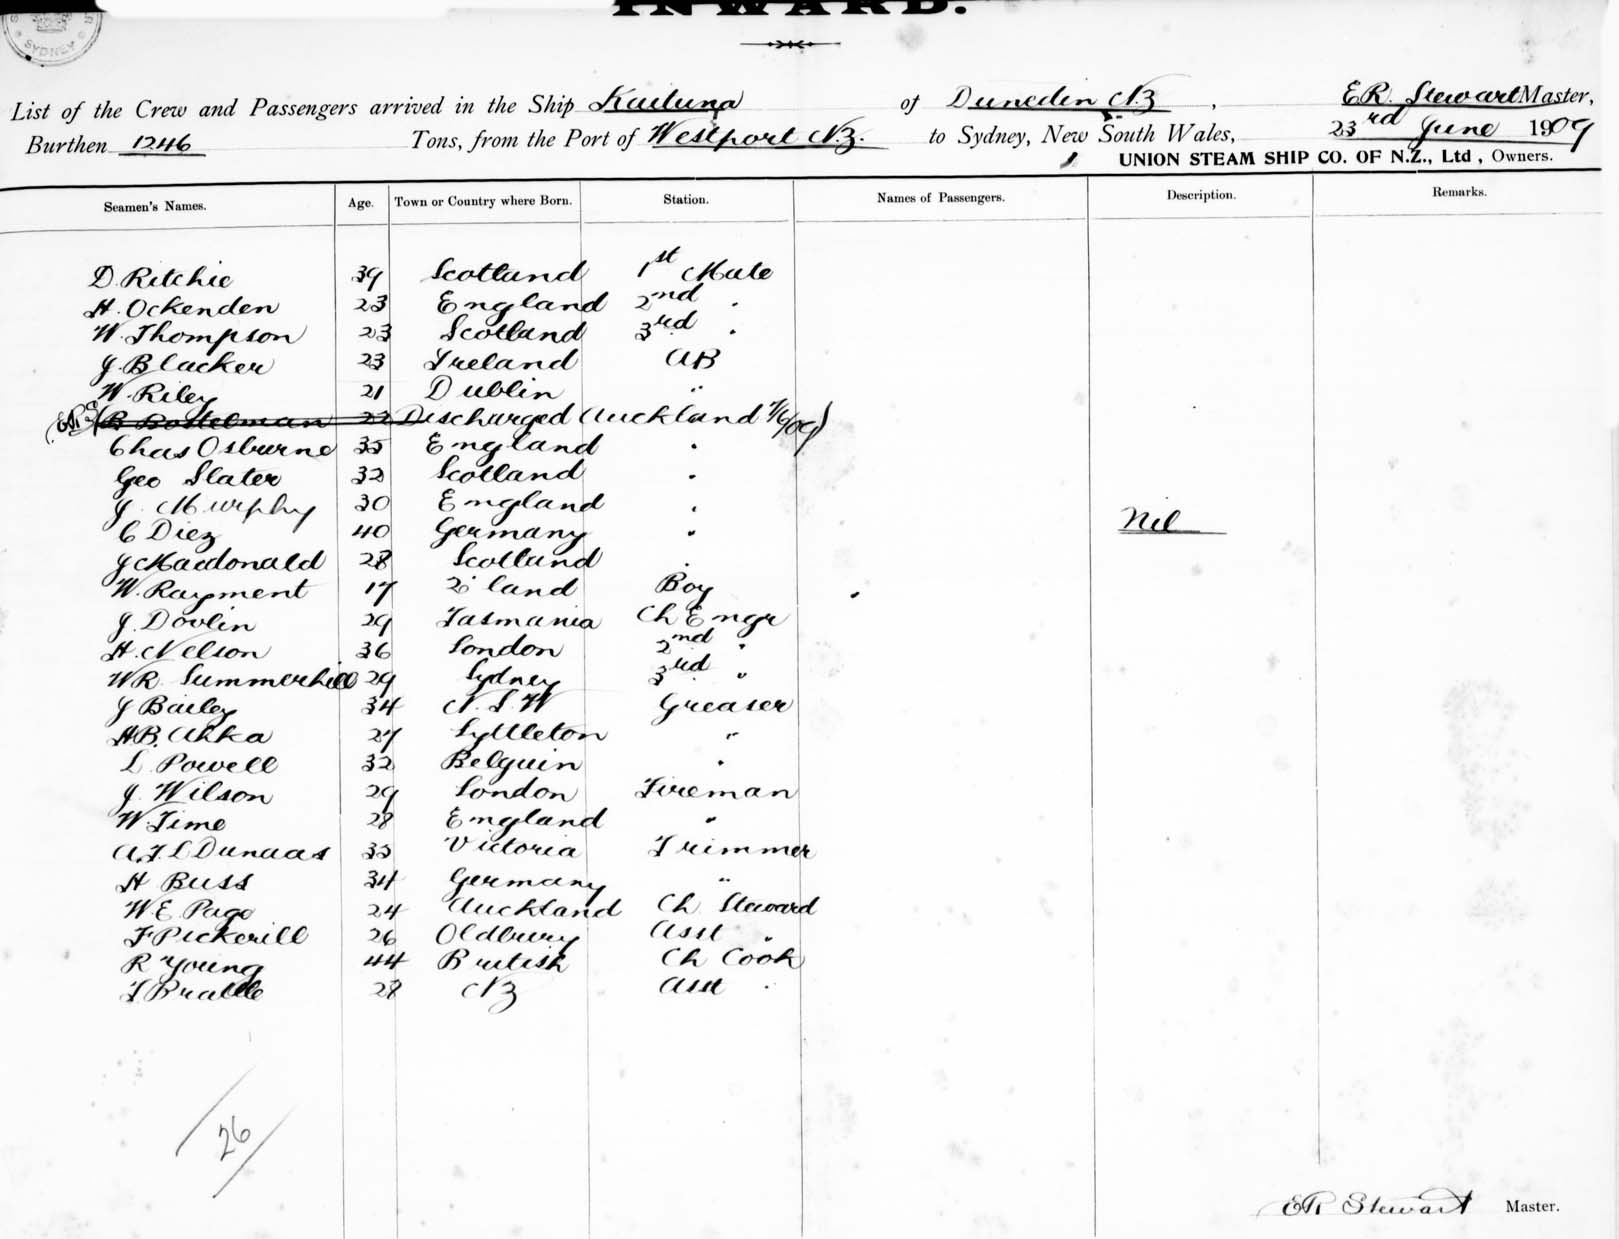 INWARD.
SYDNEY
List of the Crew and Passengers arrived in the Ship Kaituna of Dunedin NZ, ER. Stewart Master,
Burthen 1246 Tons, from the Port of Westport NZ. to Sydney, New South Wales, 23rd June 1909
UNION STEAM SHIP CO. OF N.Z., Ltd, Owners.
Seamen's Names. Age. Town or Country where Born. Station. Names of Passengers. Description. Remarks.
D. Ritchie 39 Scotland 1st Mate
H. Ockenden 23 England 2nd "
W. Thompson 23 Scotland 3rd "
J. Blacker 23 Ireland AB
W. Riley 21 Dublin "
B Bostelman 22 Discharged Auckland
Chas Osburne 35 England "
Geo Slater 32 Scotland "
J. Murphy 30 England "
C Diez 40 Germany " Nil
J Macdonald 28 Scotland "
W. Rayment 17 land Boy
J. Dovlin 29 Tasmania Ch Engr
H. Nelson 36 London 2nd "
WR Summerhill 29 Sydney 3rd "
J Bailey 34 N.S.W Greaser
HB. Ahka 27 Lyttleton "
L. Powell 32 Belguin "
J. Wilson 29 London Fireman
W. Time 28 England "
A.F.L Dundas 35 Victoria Trimmer
H Buss 34 Germany "
W.E. Page 24 Auckland Ch. Steward
F Pickerill 26 Oldbury Asst "
R Young 44 British Ch Cook
T Brattle 28 NZ Asst "
26
ER Stewart Master.